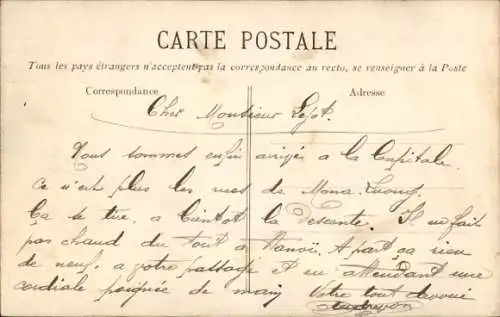 CARTE POSTALE
Tous les pays étrangers n'acceptent pas la correspondance au recto, se renseigner à la Poste
Correspondance
Adresse
Cher Monsieur
Nous sommes enfin arrivés a la Capitale
ce n'est plus les rues de Mona
Ça se tire, a bientot la descente. Il ne fait
pas chaud du tout à Hanoï. A part ça rien
de neuf. a votre passage et en attendant une
cordiale poignée de main Votre tout dévoué